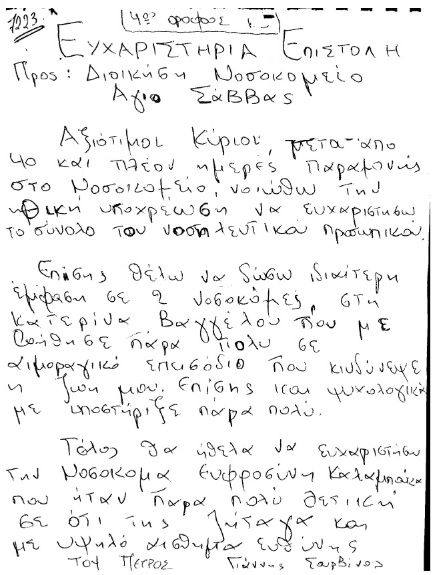 1223.
4ος όροφος
ΕΥΧΑΡΙΣΤΗΡΙΑ ΕΠΙΣΤΟΛΗ
Προς: Διοικήση Νοσοκομείο
Άγιο ΣάΒΒας
Αξιότιμοι Κύριοι, μετα από
40 και πλέον ημερές Παραμονής
στο Νοσοκομείο, νοιώθω την
ηθική υποχρέωση να ευχαριστησω
το σύνολο του νοσηλευτικά προσωπικά.
Επίσης θέλω να δώσω ιδιαίτερη
έμφαση σε 2 νοσοκόμες, στη
Κατερίνα Βαγγέλου που με
βοήθησε πάρα πολυ σε
αιμοραγικό επεισόδιο που κινδύνεψε
η ζωη μου. Επίσης και ψυχολογικά
με υποστήριξε πάρα πολύ.
Τέλος θα ήθελα να ευχαριστησω
την Νοσοκομα Ευφροσύνη Καλαμπόκα
που ήταν πάρα πολύ θετική
σε ότι της ζήταγα και
με υψηλό αισθημα ευθύνης
του ΠΕΤΡΟΣ Γιάννης